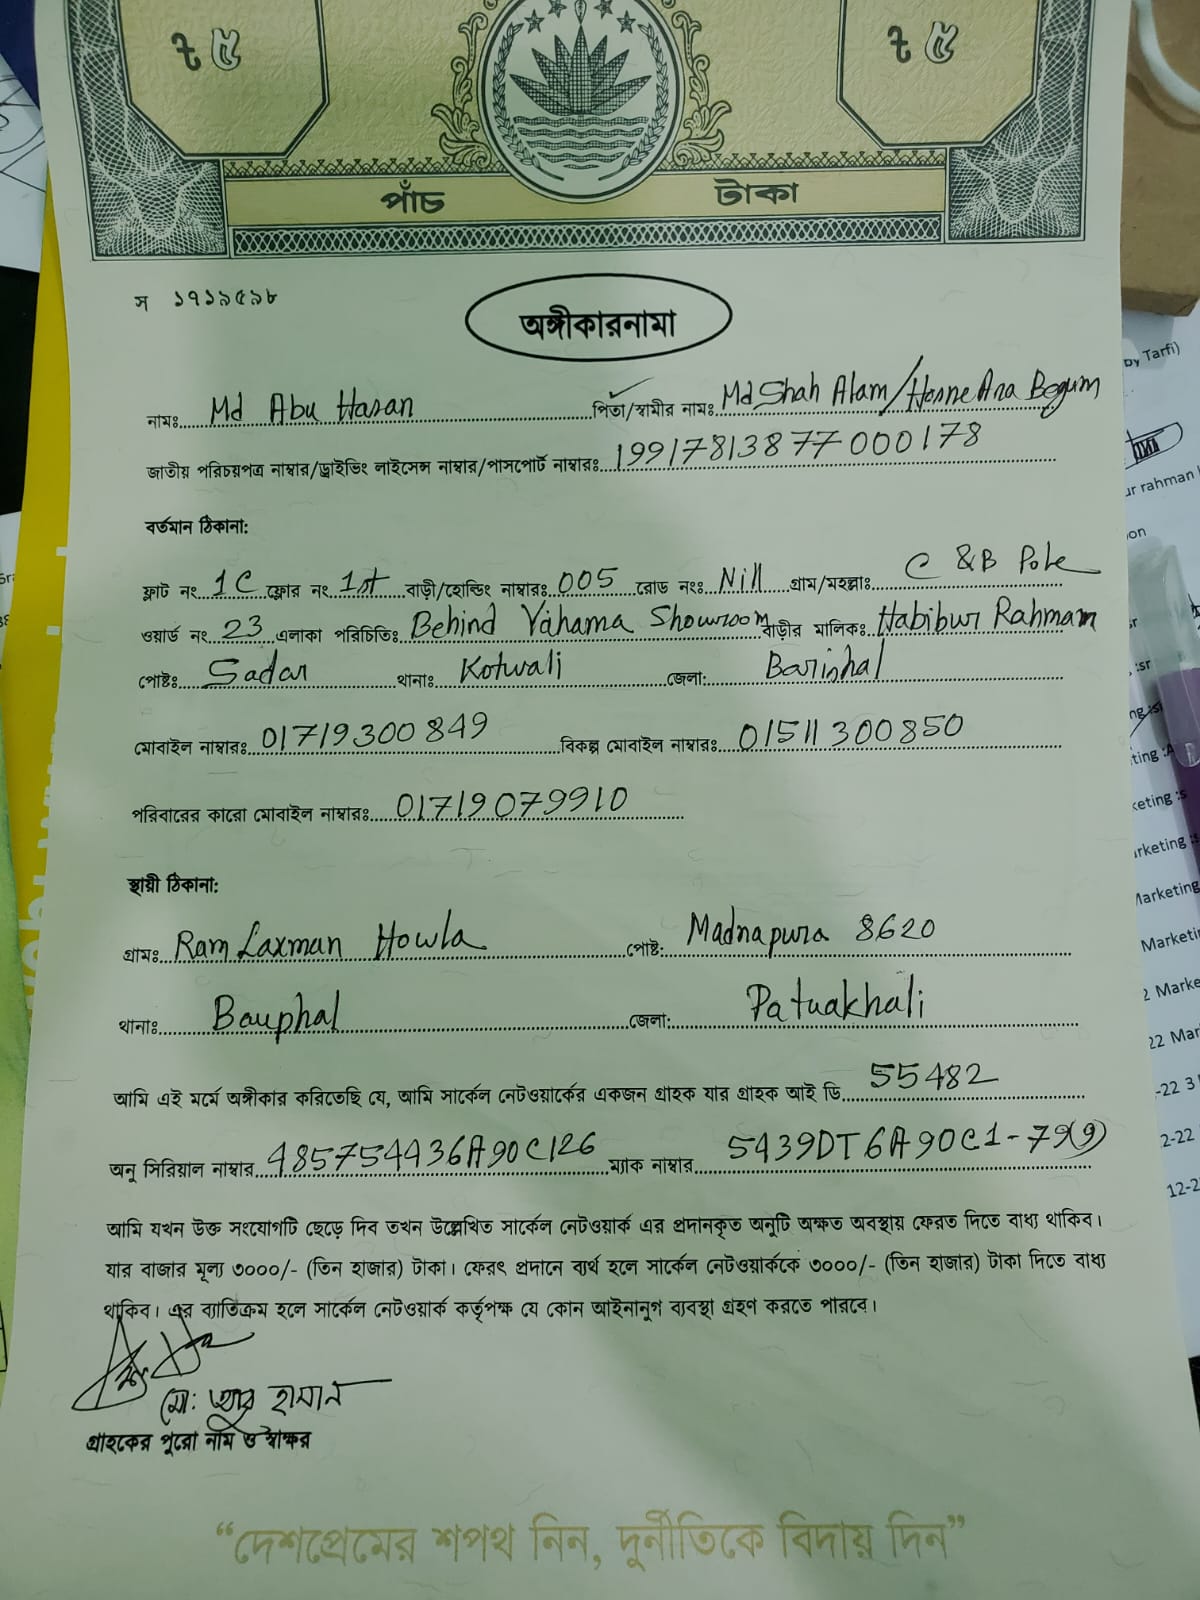 ৳ ৫ ৳ ৫
পাঁচ টাকা
স ১৭১৯৫৯৮
অঙ্গীকারনামা
নামঃ Md Abu Hasan পিতা/স্বামীর নামঃ Md Shah Alam/Hosne Ara Begum
জাতীয় পরিচয়পত্র নাম্বার/ড্রাইভিং লাইসেন্স নাম্বার/পাসপোর্ট নাম্বারঃ 19917813877000178
বর্তমান ঠিকানা:
ফ্লাট নং 1C ফ্লোর নং 1st বাড়ী/হোল্ডিং নাম্বারঃ 005 রোড নংঃ Nill গ্রাম/মহল্লাঃ C &B Pole
ওয়ার্ড নং 23 এলাকা পরিচিতিঃ Behind Yahama Showroom বাড়ীর মালিকঃ Habibur Rahmam
পোষ্টঃ Sadar থানাঃ Kotwali জেলা: Barishal
মোবাইল নাম্বারঃ 01719300849 বিকল্প মোবাইল নাম্বারঃ 01511300850
পরিবারের কারো মোবাইল নাম্বারঃ 01719079910
স্থায়ী ঠিকানা:
গ্রামঃ Ram Laxman Howla পোষ্ট: Madnapura 8620
থানাঃ Bauphal জেলা: Patuakhali
আমি এই মর্মে অঙ্গীকার করিতেছি যে, আমি সার্কেল নেটওয়ার্কের একজন গ্রাহক যার গ্রাহক আই ডি 55482
অনু সিরিয়াল নাম্বার 485754436A90C126 ম্যাক নাম্বার 5439DT6A90C1-79(9)
আমি যখন উক্ত সংযোগটি ছেড়ে দিব তখন উল্লেখিত সার্কেল নেটওয়ার্ক এর প্রদানকৃত অনুটি অক্ষত অবস্থায় ফেরত দিতে বাধ্য থাকিব।
যার বাজার মূল্য ৩০০০/- (তিন হাজার) টাকা। ফেরৎ প্রদানে ব্যর্থ হলে সার্কেল নেটওয়ার্ককে ৩০০০/- (তিন হাজার) টাকা দিতে বাধ্য
থাকিব। এর ব্যাতিক্রম হলে সার্কেল নেটওয়ার্ক কর্তৃপক্ষ যে কোন আইনানুগ ব্যবস্থা গ্রহণ করতে পারবে।
মো: আবু হাসান
গ্রাহকের পুরো নাম ও স্বাক্ষর
“দেশপ্রেমের শপথ নিন, দুর্নীতিকে বিদায় দিন”